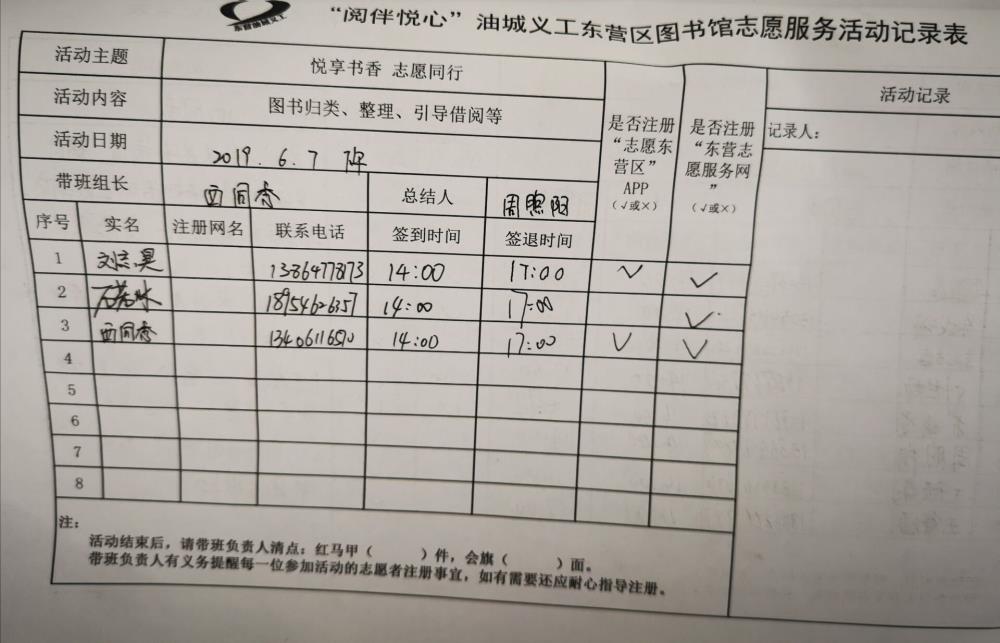 东营油城义工
“阅伴悦心”油城义工东营区图书馆志愿服务活动记录表
活动主题 悦享书香 志愿同行
活动内容 图书归类、整理、引导借阅等
活动日期 2019.6.7
带班组长 西同香 总结人 周照阳
是否注册“志愿东营区”APP（√或×）
是否注册“东营志愿服务网”（√或×）
活动记录
记录人：
序号 实名 注册网名 联系电话 签到时间 签退时间
1 刘志昊 13864778173 14:00 17:00 √ √
2 石若水 18954626357 14:00 17:00 √
3 西同香 14:00 17:00 √ √
4
5
6
7
8
注：
活动结束后，请带班负责人清点：红马甲（ ）件，会旗（ ）面。
带班负责人有义务提醒每一位参加活动的志愿者注册事宜，如有需要还应耐心指导注册。